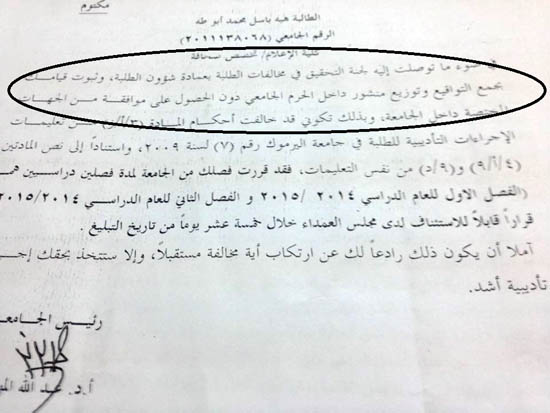 مكتوم
الطالبة هبه باسل محمد أبو طه
الرقم الجامعي (٢٠١١١٣٨٠٦٨)
كلية الإعلام/ تخصص صحافة
ضوء ما توصلت إليه لجنة التحقيق في مخالفات الطلبة بعمادة شؤون الطلبة، وثبوت قيامك
بجمع التواقيع وتوزيع منشور داخل الحرم الجامعي دون الحصول على موافقة من الجهات
المختصة داخل الجامعة، وبذلك تكوني قد خالفت أحكام المادة من تعليمات
الإجراءات التأديبية للطلبة في جامعة اليرموك رقم (٧) لسنة ٢٠٠٩، واستناداً إلى نص المادتين
(٤/أ/٩) و(٩/د) من نفس التعليمات، فقد قررت فصلك من الجامعة لمدة فصلين دراسيين همـ
(الفصل الاول للعام الدراسي ٢٠١٤ /٢٠١٥ و الفصل الثاني للعام الدراسي ٢٠١٥/٢٠١٤
قراراً قابلاً للاستئناف لدى مجلس العمداء خلال خمسة عشر يوماً من تاريخ التبليغ .
آملا أن يكون ذلك رادعاً لك عن ارتكاب أية مخالفة مستقبلاً، وإلا ستتخذ بحقك إجر
تأديبية أشد.
رئيس الجامعـ
أ.د. عبد الله المو